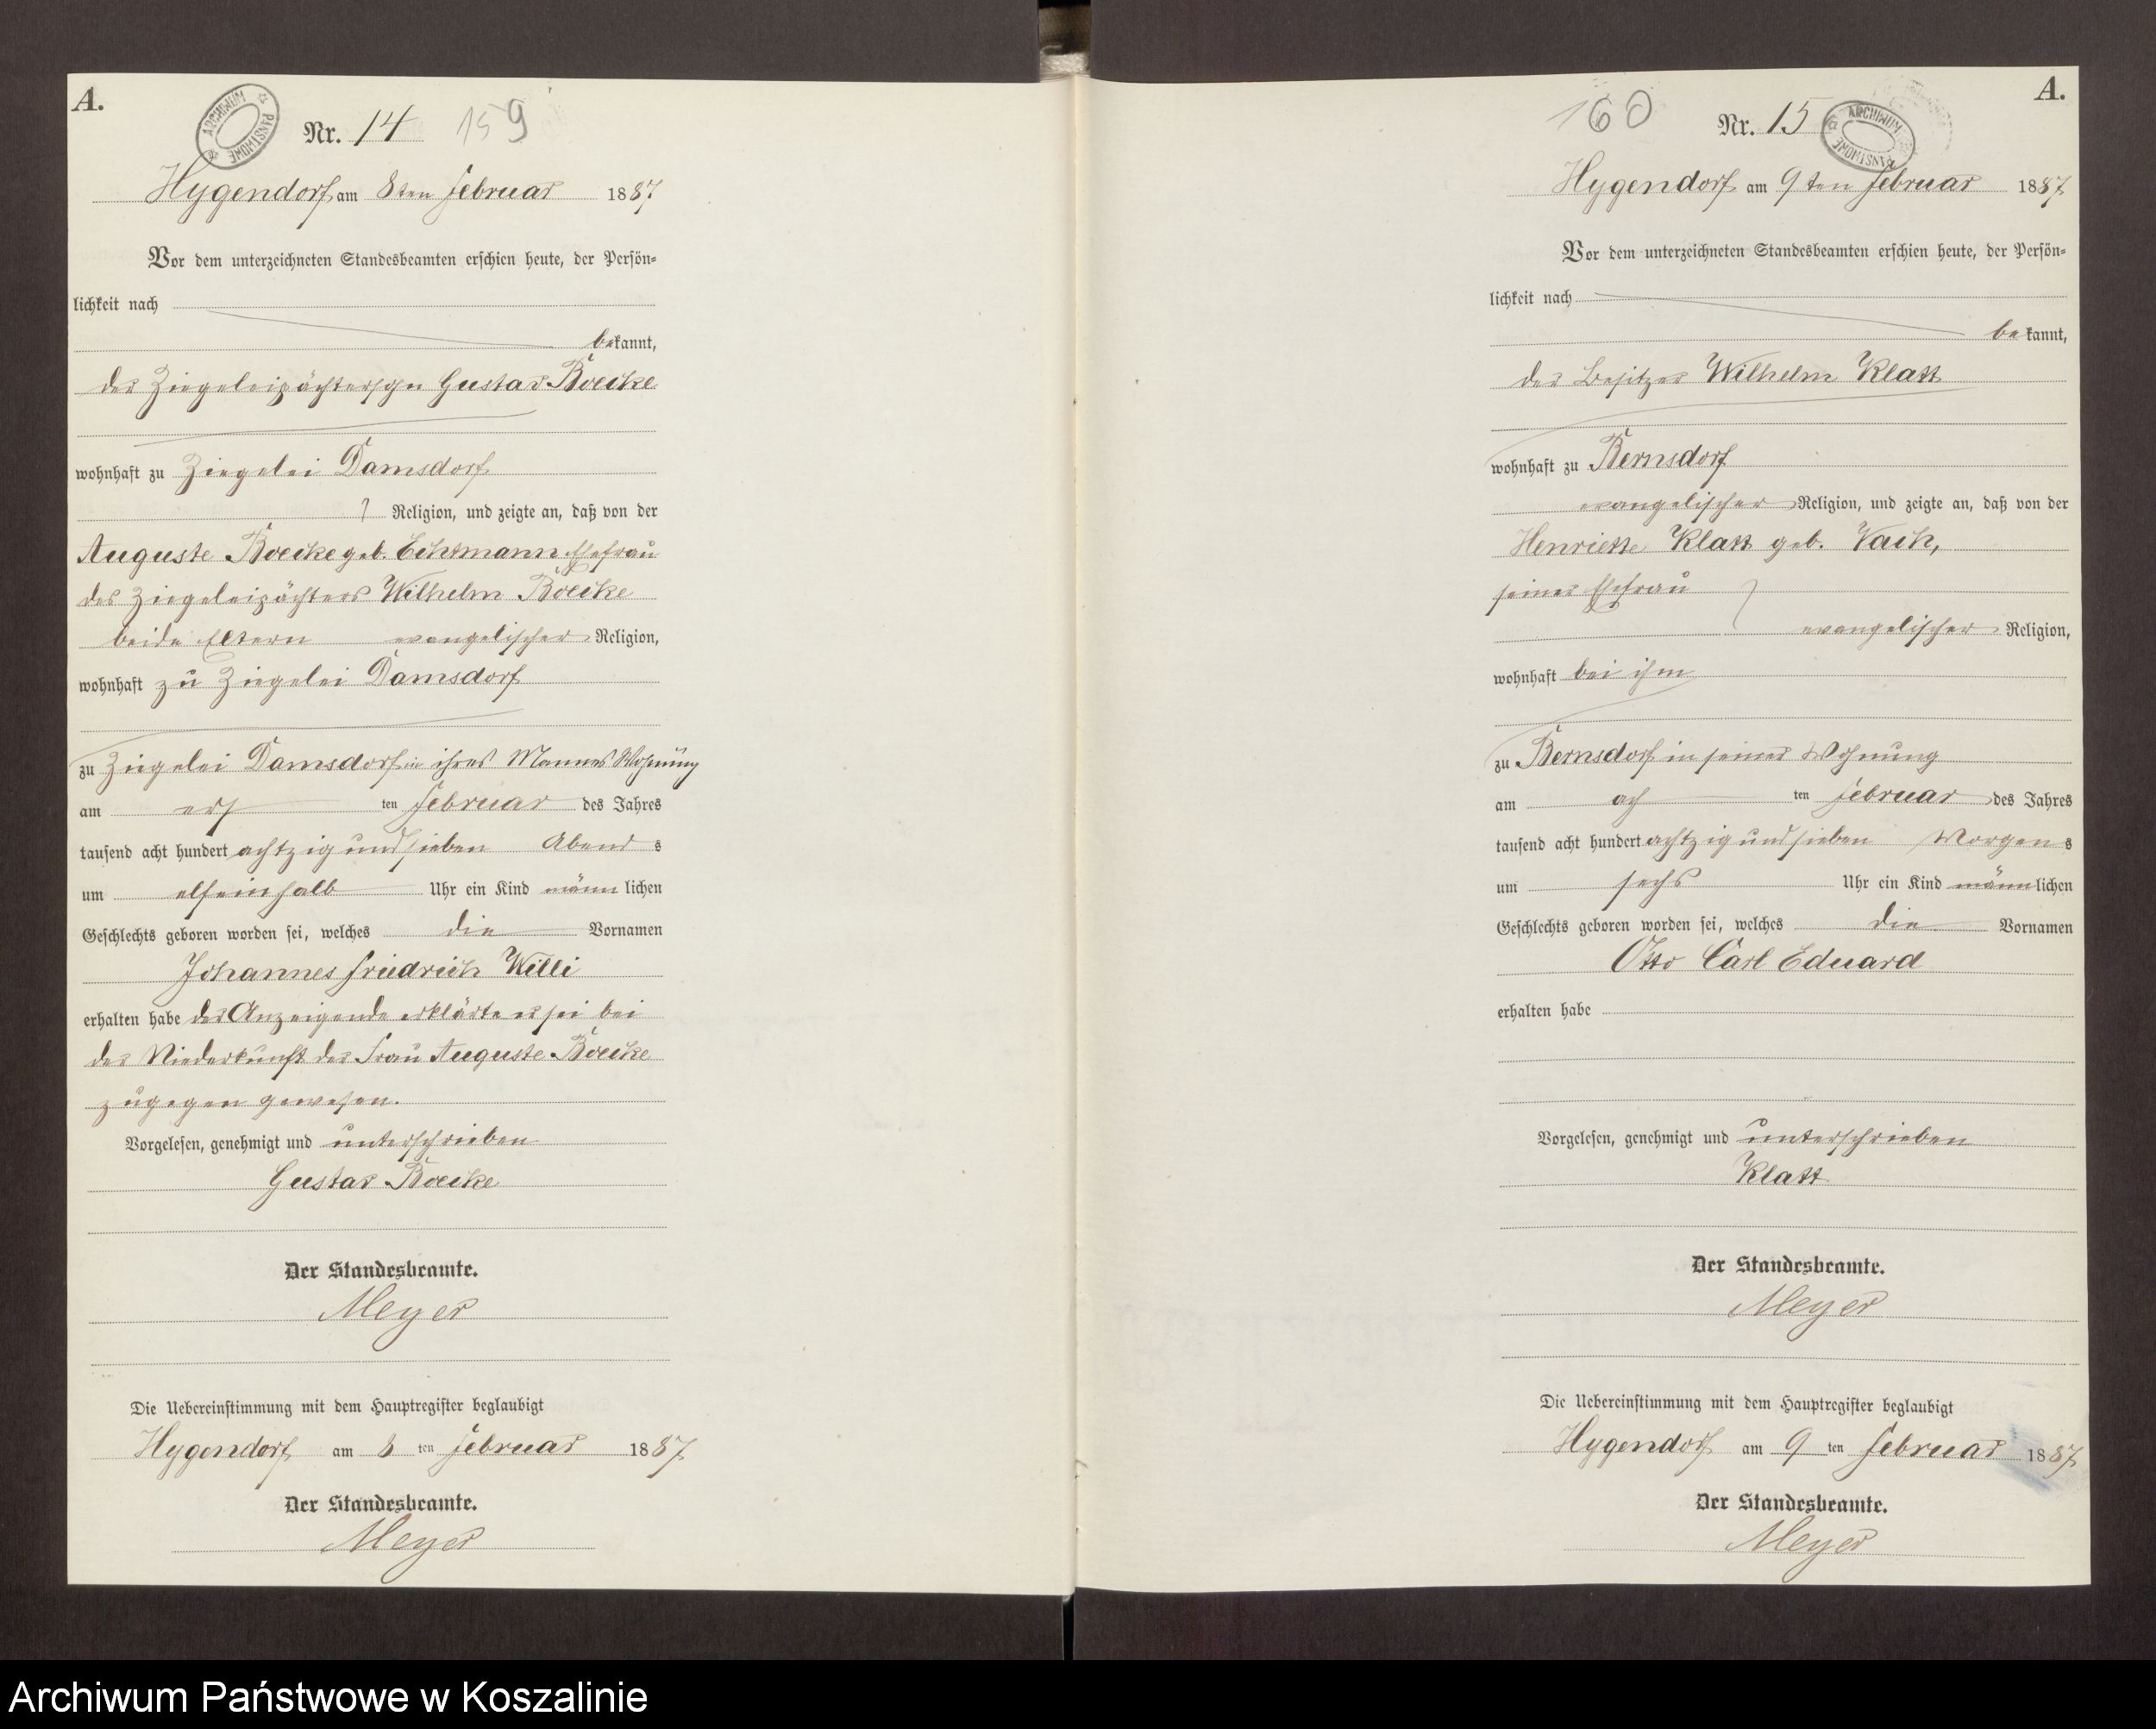 A.
ARCHIWUM PAŃSTWOWE
Nr. 14 159
Hygendorf am 8ten Februar 1887
Vor dem unterzeichneten Standesbeamten erschien heute, der Persön-
lichkeit nach
bekannt,
der Ziegeleipächtersohn Gustav Boecke
wohnhaft zu Ziegelei Damsdorf
Religion, und zeigte an, daß von der
Auguste Boecke geb. Echtmann Ehefrau
des Ziegeleipächters Wilhelm Boecke
beide Eltern evangelischer Religion,
wohnhaft zu Ziegelei Damsdorf
zu Ziegelei Damsdorf in ihres Mannes Wohnung
am ers ten Februar des Jahres
tausend acht hundert achtzig und sieben Abend s
um elfeinhalb Uhr ein Kind männlichen
Geschlechts geboren worden sei, welches die Vornamen
Johannes Friedrich Willi
erhalten habe der Anzeigende erklärte er sei bei
der Niederkunft der Frau Auguste Boecke
zugegen gewesen.
Vorgelesen, genehmigt und unterschrieben
Gustav Boecke
Der Standesbeamte.
Meyer
Die Uebereinstimmung mit dem Hauptregister beglaubigt
Hygendorf am 8 ten Februar 1887
Der Standesbeamte.
Meyer
A.
160 Nr. 15
ARCHIWUM PAŃSTWOWE
Hygendorf am 9ten Februar 1887
Vor dem unterzeichneten Standesbeamten erschien heute, der Persön-
lichkeit nach
bekannt,
der Besitzer Wilhelm Klatt
wohnhaft zu Bernsdorf
evangelischer Religion, und zeigte an, daß von der
Henriette Klatt geb. Vach,
seiner Ehefrau
evangelischer Religion,
wohnhaft bei ihm
zu Bernsdorf in seiner Wohnung
am ach ten Februar des Jahres
tausend acht hundert achtzig und sieben Morgen s
um sechs Uhr ein Kind männlichen
Geschlechts geboren worden sei, welches die Vornamen
Otto Carl Eduard
erhalten habe
Vorgelesen, genehmigt und unterschrieben
Klatt
Der Standesbeamte.
Meyer
Die Uebereinstimmung mit dem Hauptregister beglaubigt
Hygendorf am 9 ten Februar 1887
Der Standesbeamte.
Meyer
Archiwum Państwowe w Koszalinie